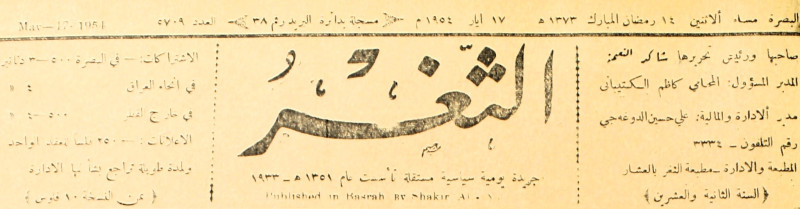 البصرة مساء الاثنين ١٤ رمضان المبارك ١٣٧٣ هـ ١٧ ايار ١٩٥٤ م مسجلة بدائرة البريد رقم ٣٨ العدد ٥٧٠٩ May-17-1954
صاحبها ورئيس تحريرها شاكر النعمة
المدير المسؤول: المحامي كاظم الكتيباني
مدير الادارة والمالية: علي حسين الدوعه جي
رقم التلفون - ٣٣٣٤
المطبعة والادارة - مطبعة الثغر بالعشار
﴿ السنة الثانية والعشرين ﴾
الثغر
جريدة يومية سياسية مستقلة تأسست عام ١٣٥١ هـ - ١٩٣٣
Published in Basrah By Shakir
الاشتراكات: - في البصرة ٥٠٠-٣ دنانير
في انحاء العراق ٤ »
في خارج القطر ٥٠٠-٤ »
الاعلانات: - ٢٥٠ فلسا للعقد الواحد
ولمدة طويلة تراجع بشأنها الادارة
﴿ ثمن النسخة ١٠ فلوس ﴾